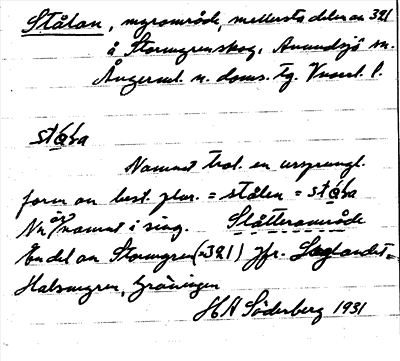 Stålan, myrområde, mellersta delen av 321
å Stormyrenskog, Anundsjö sn.
Ångerml. n. doms. tg. Vnorrl. l.
ståɫa
Namnet trol. en ursprungl.
form av best. plur. = stålen = ståɫa
Nu är namnet i sing. Slåtterområde
En del av Stormyren (=321) Jfr.
Halsmyren, Gräningen
H A Söderberg 1931